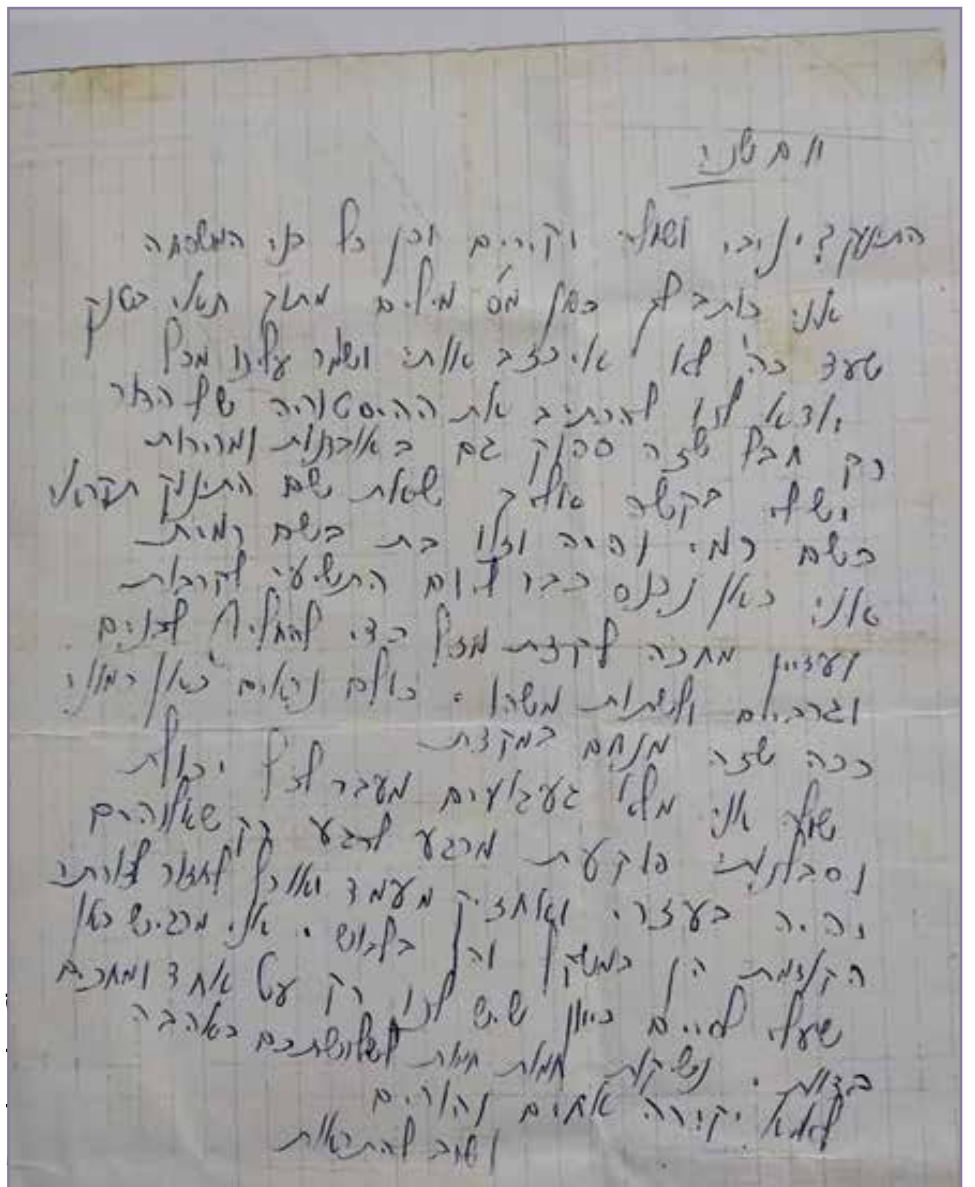 יום שני
התינוק? יניבי ושולה יקירים וכן כל בני המשפחה
אני כותב לך כאן מס מילים מתוך תאי בטנק
שעד כה לא איכזב אותי ושמר עלינו מכל
יוצא לנו להכתיב את ההיסטוריה של
רק חבל שזה ספוג גם באובדנות ומרירות
יש לי בקשה אליך שאת שם התינוק תקראי
בשם רמי והיה וזו בת בשם רמית
אני כאן נכנס כבר ליום התשיעי לקרבות
ועדיין מחכה לקצת מזל כדי להחליף לבנים
וגרביים ולשתות משהו. כולם נראים כאן כמוני
ככה שזה מנחם במקצת
שולה אני מלא געגועים מעבר לכל יכולת
וסבלנותי פוקעת מרגע לרגע רק שאלוהים
יהיה בעזרי ואחזיק מעמד ואוכל לחזור לצורתי
הקודמת הן במשקל והן בלבוש. אני מרגיש כאן
שעלי לסיים כיוון שיש לנו רק עט אחד ומחכים
בתור. נשיקות חמות לשלושתכם באהבה
לאמא יקירה אחים והורים
ושוב להתראות